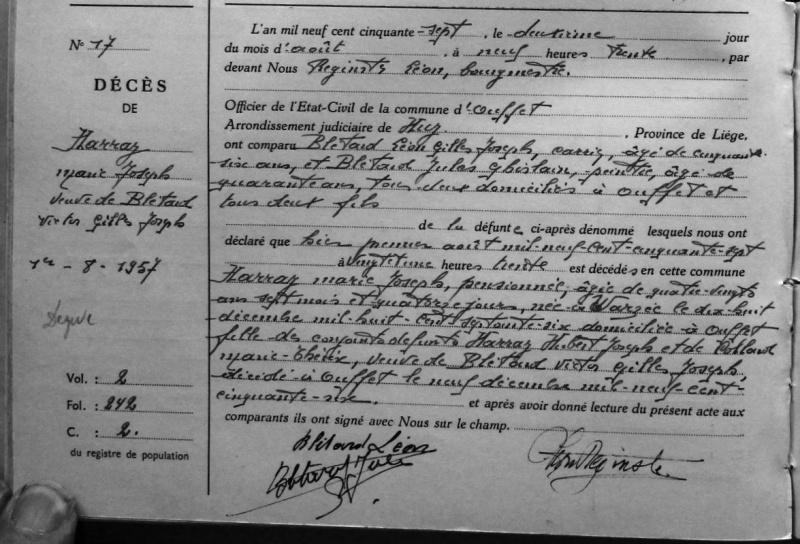 N° 17
DÉCÈS
DE
Harray
marie Joseph
veuve de Blétard
victor Gilles Joseph
1er - 8 - 1957
Vol. : 2
Fol. : 242
C. : 2.
du registre de population
L'an mil neuf cent cinquante-sept, le deuxième jour
du mois d'août, à neuf heures trente, par
devant Nous Reginste Léon, bourgmestre.
Officier de l'Etat-Civil de la commune d'Ouffet
Arrondissement judiciaire de Huy, Province de Liége,
ont comparu Blétard Léon Gilles Joseph, carrier, âgé de cinquante-
six ans, et Blétard Jules Ghislain, peintre, âgé de
quarante ans, tous deux domiciliés à Ouffet et
tous deux fils
de la défunte ci-après dénommé lesquels nous ont
déclaré que hier premier août mil-neuf-cent-cinquante-sept
à vingt et une heures trente est décédée en cette commune
Harray marie Joseph, pensionnée, âgée de quatre-vingts
ans sept mois et quatorze jours, née à Warzée le dix-huit
décembre mil-huit-cent-septante-six domiciliée à Ouffet
fille des conjoints défunts Harray Hubert Joseph et de
marie-thérèse, veuve de Blétard victor Gilles Joseph,
décédé à Ouffet le neuf décembre mil-neuf-cent-
cinquante-six. et après avoir donné lecture du présent acte aux
comparants ils ont signé avec Nous sur le champ.
Blétard Léon